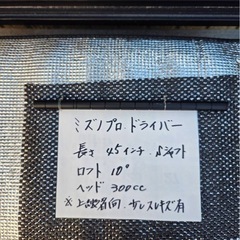 ミズノプロ.ドライバー
長さ 45インチ.Sシャフト
ロフト 10°
ヘッド 300cc
※上級者向.サレスレキズ有